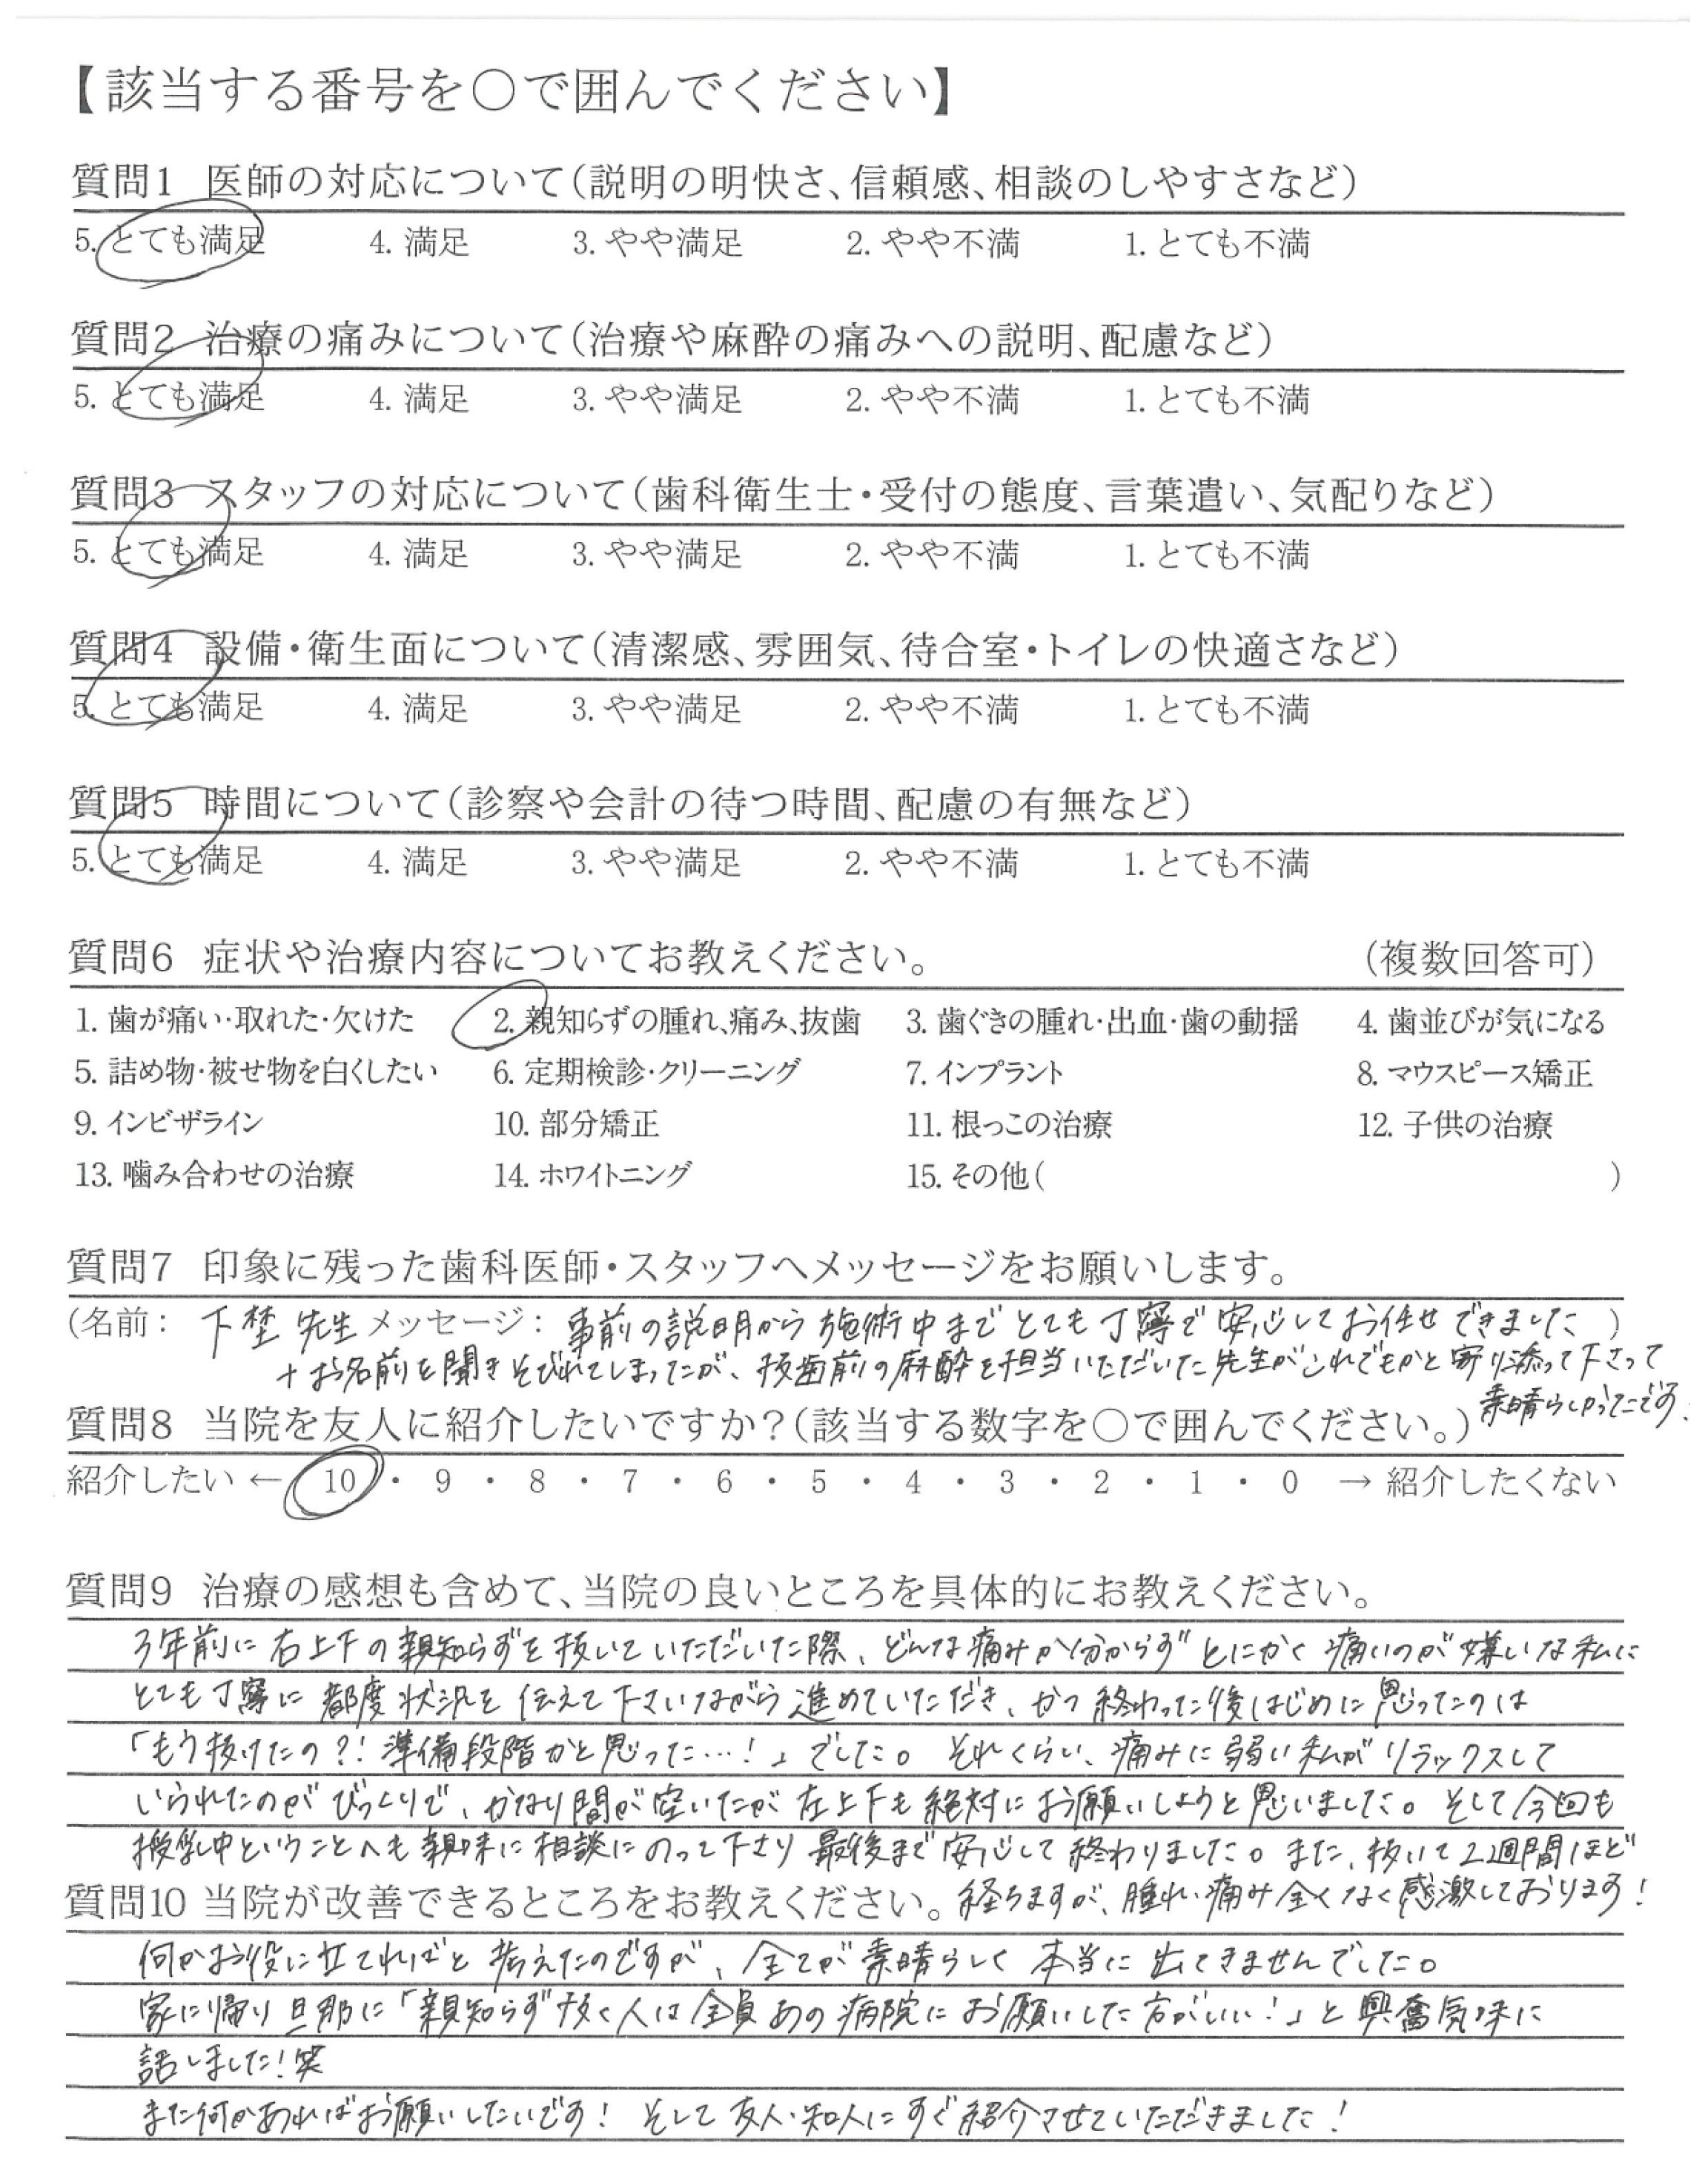 【該当する番号を〇で囲んでください】
質問1 医師の対応について(説明の明快さ、信頼感、相談のしやすさなど)
5. とても満足 4. 満足 3. やや満足 2. やや不満 1. とても不満
質問2 治療の痛みについて(治療や麻酔の痛みへの説明、配慮など)
5. とても満足 4. 満足 3. やや満足 2. やや不満 1. とても不満
質問3 スタッフの対応について(歯科衛生士・受付の態度、言葉遣い、気配りなど)
5. とても満足 4. 満足 3. やや満足 2. やや不満 1. とても不満
質問4 設備・衛生面について(清潔感、雰囲気、待合室・トイレの快適さなど)
5. とても満足 4. 満足 3. やや満足 2. やや不満 1. とても不満
質問5 時間について(診察や会計の待つ時間、配慮の有無など)
5. とても満足 4. 満足 3. やや満足 2. やや不満 1. とても不満
質問6 症状や治療内容についてお教えください。 (複数回答可)
1. 歯が痛い・取れた・欠けた 2. 親知らずの腫れ、痛み、抜歯 3. 歯ぐきの腫れ・出血・歯の動揺 4. 歯並びが気になる
5. 詰め物・被せ物を白くしたい 6. 定期検診・クリーニング 7. インプラント 8. マウスピース矯正
9. インビザライン 10. 部分矯正 11. 根っこの治療 12. 子供の治療
13. 噛み合わせの治療 14. ホワイトニング 15. その他( )
質問7 印象に残った歯科医師・スタッフへメッセージをお願いします。
(名前: 下埜 先生 メッセージ: 事前の説明から施術中までとても丁寧で安心してお任せできました )
+お名前を聞きそびれてしまったが、抜歯前の麻酔を担当いただいた先生がこれでもかと寄り添って下さって
素晴らしかったです.
質問8 当院を友人に紹介したいですか?(該当する数字を〇で囲んでください。)
紹介したい ← 10 ・ 9 ・ 8 ・ 7 ・ 6 ・ 5 ・ 4 ・ 3 ・ 2 ・ 1 ・ 0 → 紹介したくない
質問9 治療の感想も含めて、当院の良いところを具体的にお教えください。
3年前に右上下の親知らずを抜いていただいた際、どんな痛みか分からずとにかく痛いのが嫌いな私に
とても丁寧に都度状況を伝えて下さいながら進めていただき、かつ終わった後はじめに思ったのは
「もう抜けたの?!準備段階かと思った…!」でした。それくらい、痛みに弱い私がリラックスして
いられたのがびっくりで、かなり間が空いたが左上下も絶対にお願いしようと思いました。そして今回も
授乳中ということへも親味に相談にのって下さり最後まで安心して終わりました。また、抜いて2週間ほど
経ちますが、腫れ・痛み全くなく感激しております!
質問10 当院が改善できるところをお教えください。
何かお役に立てればと考えたのですが、全てが素晴らしく本当に出てきませんでした。
家に帰り旦那に「親知らず抜く人は全員あの病院にお願いした方がいい!」と興奮気味に
話しました!笑
また何かあればお願いしたいです! そして友人・知人にすぐ紹介させていただきました!